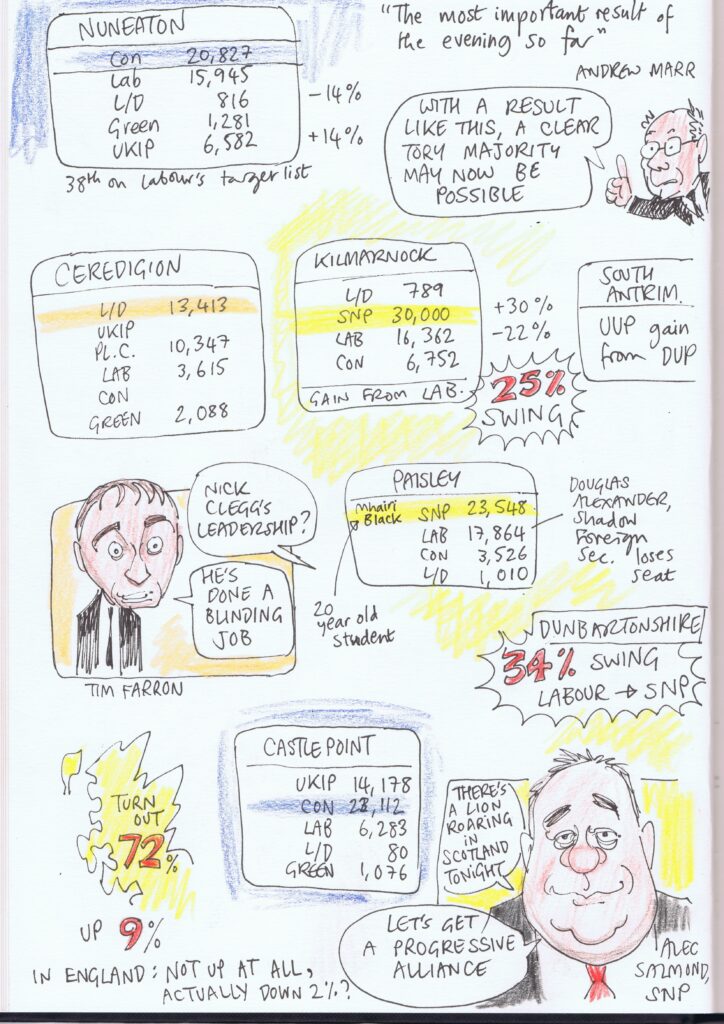 NUNEATON
Con 20,827
Lab 15,945
L/D 816
Green 1,281
UKIP 6,582
-14%
+14%
38th on Labour's target list
"The most important result of
the evening so far"
ANDREW MARR
WITH A RESULT
LIKE THIS, A CLEAR
TORY MAJORITY
MAY NOW BE
POSSIBLE
CEREDIGION
L/D 13,413
UKIP
PL.C. 10,347
LAB 3,615
CON
GREEN 2,088
KILMARNOCK
L/D 789
SNP 30,000
LAB 16,362
CON 6,752
GAIN FROM LAB.
+30%
-22%
25%
SWING
SOUTH
ANTRIM.
UUP gain
from DUP
NICK
CLEGG'S
LEADERSHIP?
HE'S
DONE A
BLINDING
JOB
TIM FARRON
PAISLEY
Mhairi
Black
SNP 23,548
LAB 17,864
CON 3,526
L/D 1,010
20
year old
student
DOUGLAS
ALEXANDER,
Shadow
Foreign
Sec. loses
seat
DUNBARTONSHIRE
34% SWING
LABOUR → SNP
TURN
OUT
72%
UP 9%
IN ENGLAND: NOT UP AT ALL,
ACTUALLY DOWN 2%?
CASTLE POINT
UKIP 14,178
CON 23,112
LAB 6,283
L/D 80
GREEN 1,076
THERE'S
A LION
ROARING
IN
SCOTLAND
TONIGHT
LET'S GET
A PROGRESSIVE
ALLIANCE
ALEC
SALMOND,
SNP